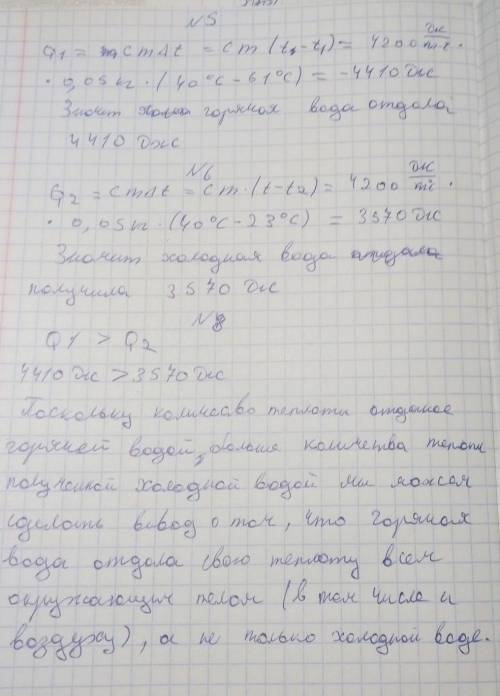 N5
Q1 = cmΔt = cm(t2-t1) = 4200 Дж/m·г ·
· 0,05кг · (40°C - 61°C) = -4410 Дж
Значит горячая вода отдала
4410 Дж
N6
Q2 = cmΔt = cm·(t-t2) = 4200 Дж/m·г ·
· 0,05кг · (40°C - 23°C) = 3570 Дж
Значит холодная вода отдала
получила 3570 Дж
N8
Q1 > Q2
4410 Дж > 3570 Дж
Поскольку количество теплоти отданное
горячей водой, больше количества теплоти
полученной холодной водой ми можем
сделать вивод о том, что горячая
вода отдала свою теплоту всем
окружающим телом (в том числе и
воздуху), а не только холодной воде.